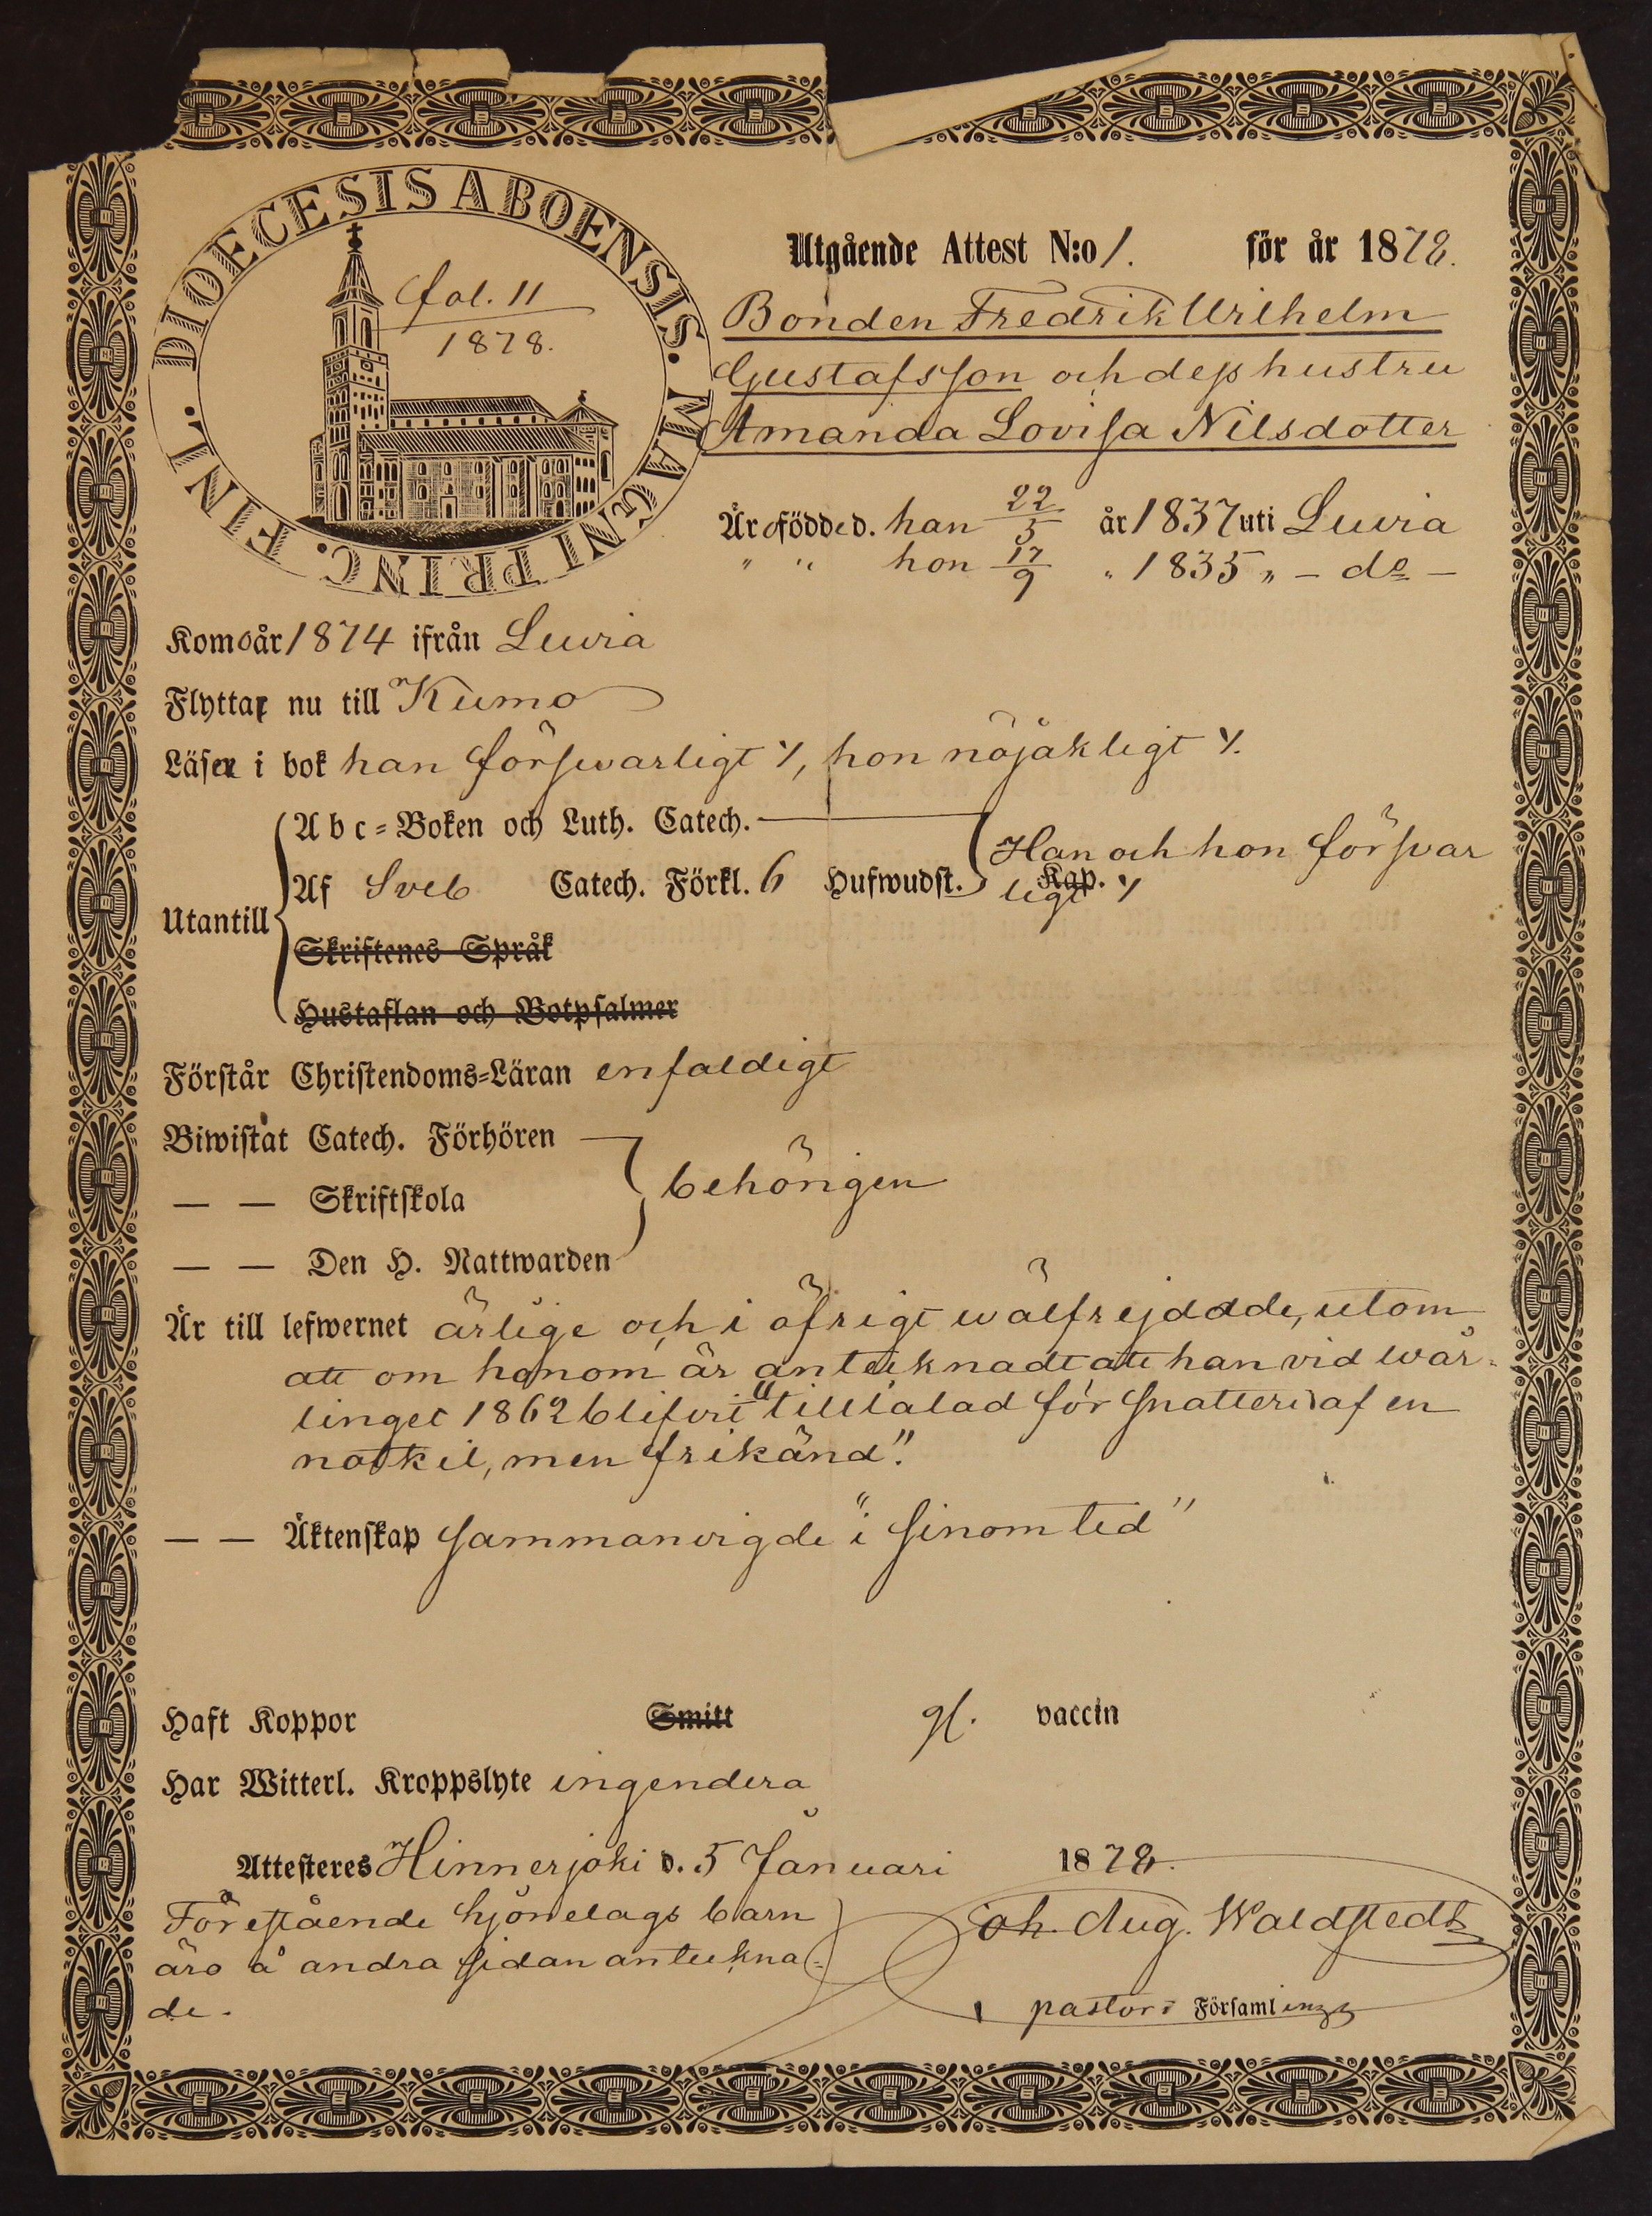 DIOECESIS ABOENSIS. MAGNI PRINC. FINL.
fol. 11
1878.
Utgående Attest N:o 1. för år 1878.
Bonden Fredrik Wilhelm
Gustafsson och dess hustru
Amanda Lovisa Nilsdotter
Äro födde d. han 22/5 år 1837 uti Luvia
" " hon 17/9 " 1835 " - do -
Kom år 1874 ifrån Luvia
Flyttar nu till Kumo
Läser i bok han försvarligt ./., hon nöjaktigt ./.
Utantill
Abc=Boken och Luth. Catech.
Af Sveb Catech. Förkl. 6 Hufwudst. Kap.
Han och hon försvar
ligt ./.
Skriftenes Språk
Hustaflan och Botpsalmer
Förstår Christendoms=Läran enfaldigt
Biwistat Catech. Förhören
— — Skriftskola
behörigen
— — Den H. Nattwarden
Är till lefwernet ärlige och i öfrigt wälfrejdade, utom
att om honom är antecknadt att han vid wår=
tinget 1862 blifvit "tilltalad för snatteri af en
, men frikänd".
— — Äktenskap sammanvigde "i sinom tid"
Haft Koppor Smitt vaccin
Har Witterl. Kroppslyte ingendera
Attesteres Hinnerjoki d. 5 Januari 1878.
Förestående hjonelags barn
äro å andra sidan anteckna=
de.
Joh. Aug. Waldstedt
pastor i Församlingen